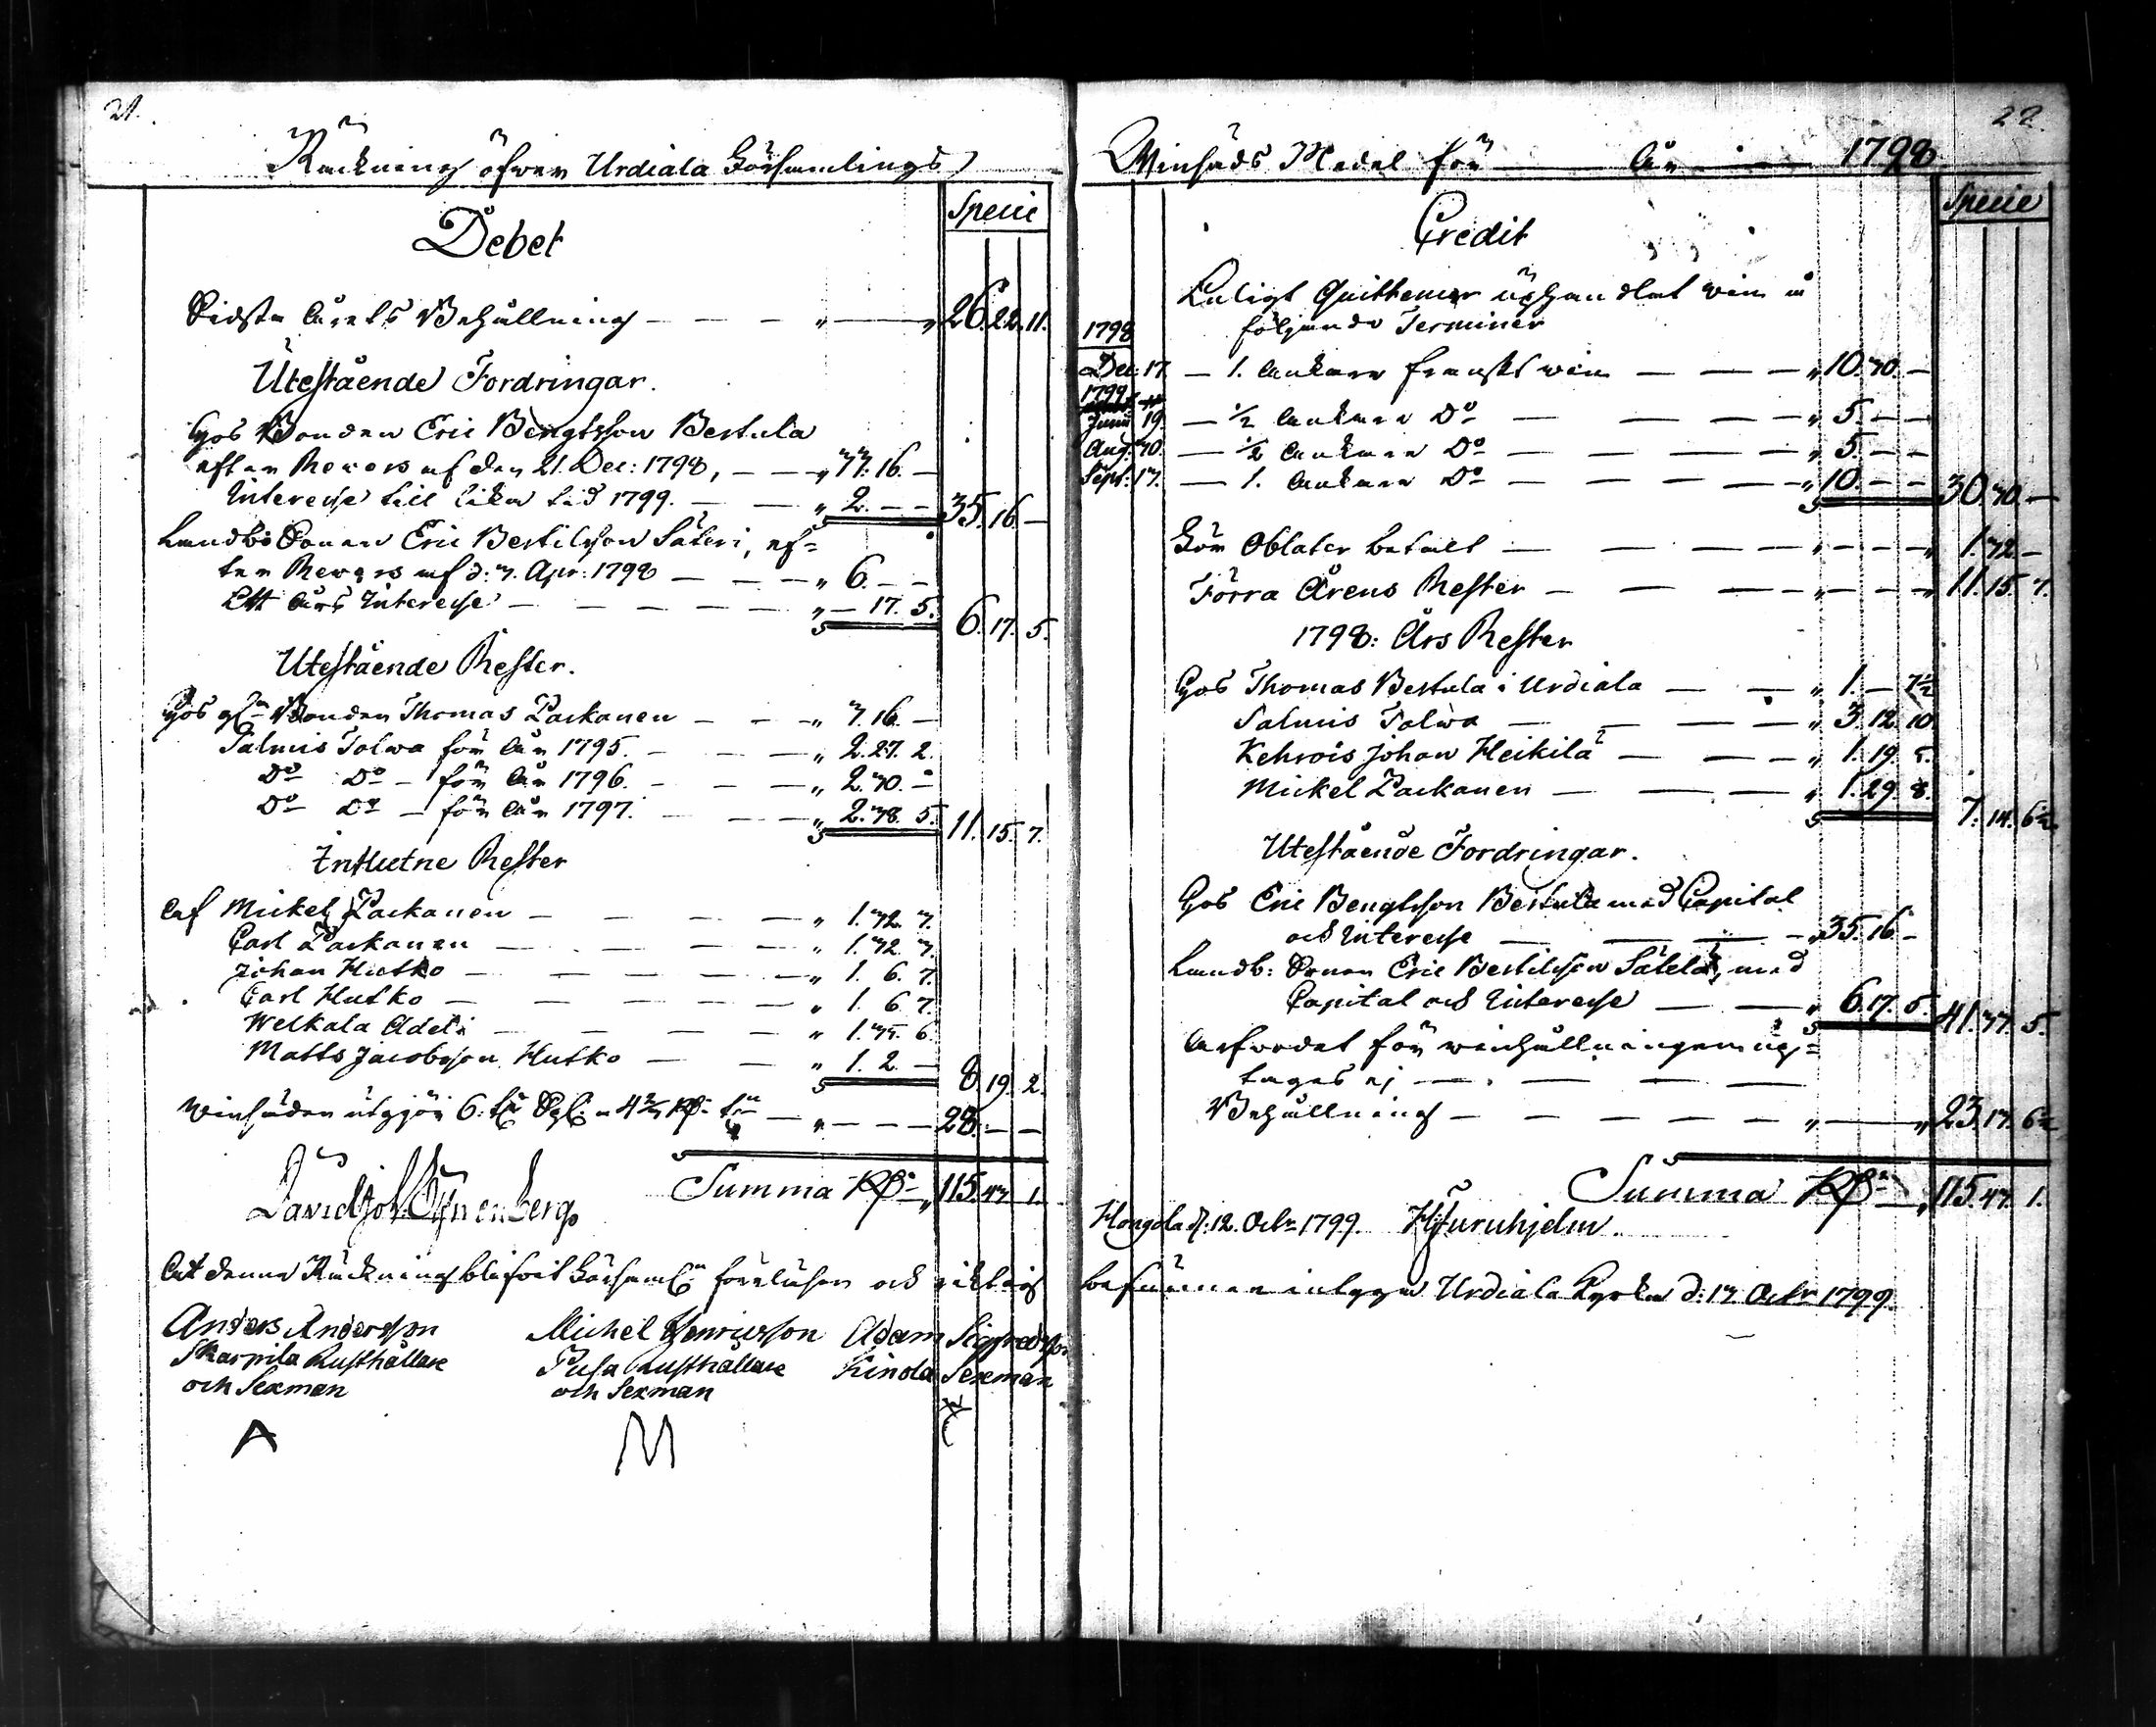 21.
Räckning öfwer Urdiala Församlings
Debet
Specie
Sidsta Årets Behållning — — — " — " 26. 22. 11.
Utestående Fordringar.
Hos Bonden Eric Bengtsson Bertula
efter Revers af den 21. Dec: 1798, — — " 33. 16. —
Interesse till lika tid 1799. — — " 2. — — 35. 16. —
Landbo Sonen Eric Bertilsson Säteri, ef=
ter Revers af d: 3. Apr: 1798 — — — " 6. — —
Ett Års Interesse — — — — — " — 17. 5. 6. 17. 5.
Utestående Rester.
Hos Bonden Thomas Packanen — — — " 3. 16. —
Salmis Tolwa för År 1795. — — — " 2. 27. 2.
Do Do — för År 1796. — — — " 2. 30. —
Do Do — för År 1797. — — — " 2. 38. 5. 11. 15. 7.
Influtne Rester
Af Mickel Packanen — — — — " 1. 32. 3.
Carl Packanen — — — — " 1. 32. 3.
Johan Hutko — — — — — " 1. 6. 7.
Carl Hutko — — — — — " 1. 6. 7.
Welkala Adeli — — — — " 1. 35. 6.
Matts Jacobsson Hutko — — " 1. 2. — 8. 19. 2.
Winsäden utgjör 6: — " — — — 28. — —
Summa " 115. 43. 1.
David Joh. Tynenberg
At denna Räckning blifvit Församl:n föreläsen och riktig
Anders Andersson Michel Henricsson Adam Sigfredsson
Skarpila Rusthållare Pusa Rusthållare Kinola Sexman
och Sexman och Sexman
A M
22.
Winsäds Medel för — År — 1798
Credit
Specie
Enligt Quittencer uphandlat win i
1798 följande Terminer
Dec: 17. — 1. Ankare franskt win — — — " 10. 30. —
1799
Junii 19. — ½ Ankare Do — — — — " 5. — —
Aug: 30. — ½ Ankare Do — — — — " 5. — —
Sept: 13. — 1. Ankare Do — — — — " 10. — — 30. 30. —
För Oblater betalt — — — — " — — — " 1. 32. —
Förra Årens Rester — — — — " — — — " 11. 15. 7.
1798: Års Rester
Hos Thomas Bertula i Urdiala — — " 1. — 7½
Salmis Tolwa — — — — " 3. 12. 10.
Kehrois Johan Heikilä — — — " 1. 19. 5.
Mickel Packanen — — — " 1. 29. 8. 7. 14. 6½
Utestående Fordringar.
Hos Eric Bengtsson Bertula med Capital
och Interesse — — — " 35. 16. —
Landb: Sonen Eric Bertilsson Sätelä, med
Capital och Interesse — — " 6. 17. 5. 41. 33. 5.
Arfvodet för winhållningen up=
tages ej — — — —
Behållning — — — — — " — " 23. 13. 6½
Summa " 115. 43. 1.
Hongola d: 12. Octr 1799. Furuhjelm
befunnen intygar Urdiala Kyrka d: 13 Octr 1799.